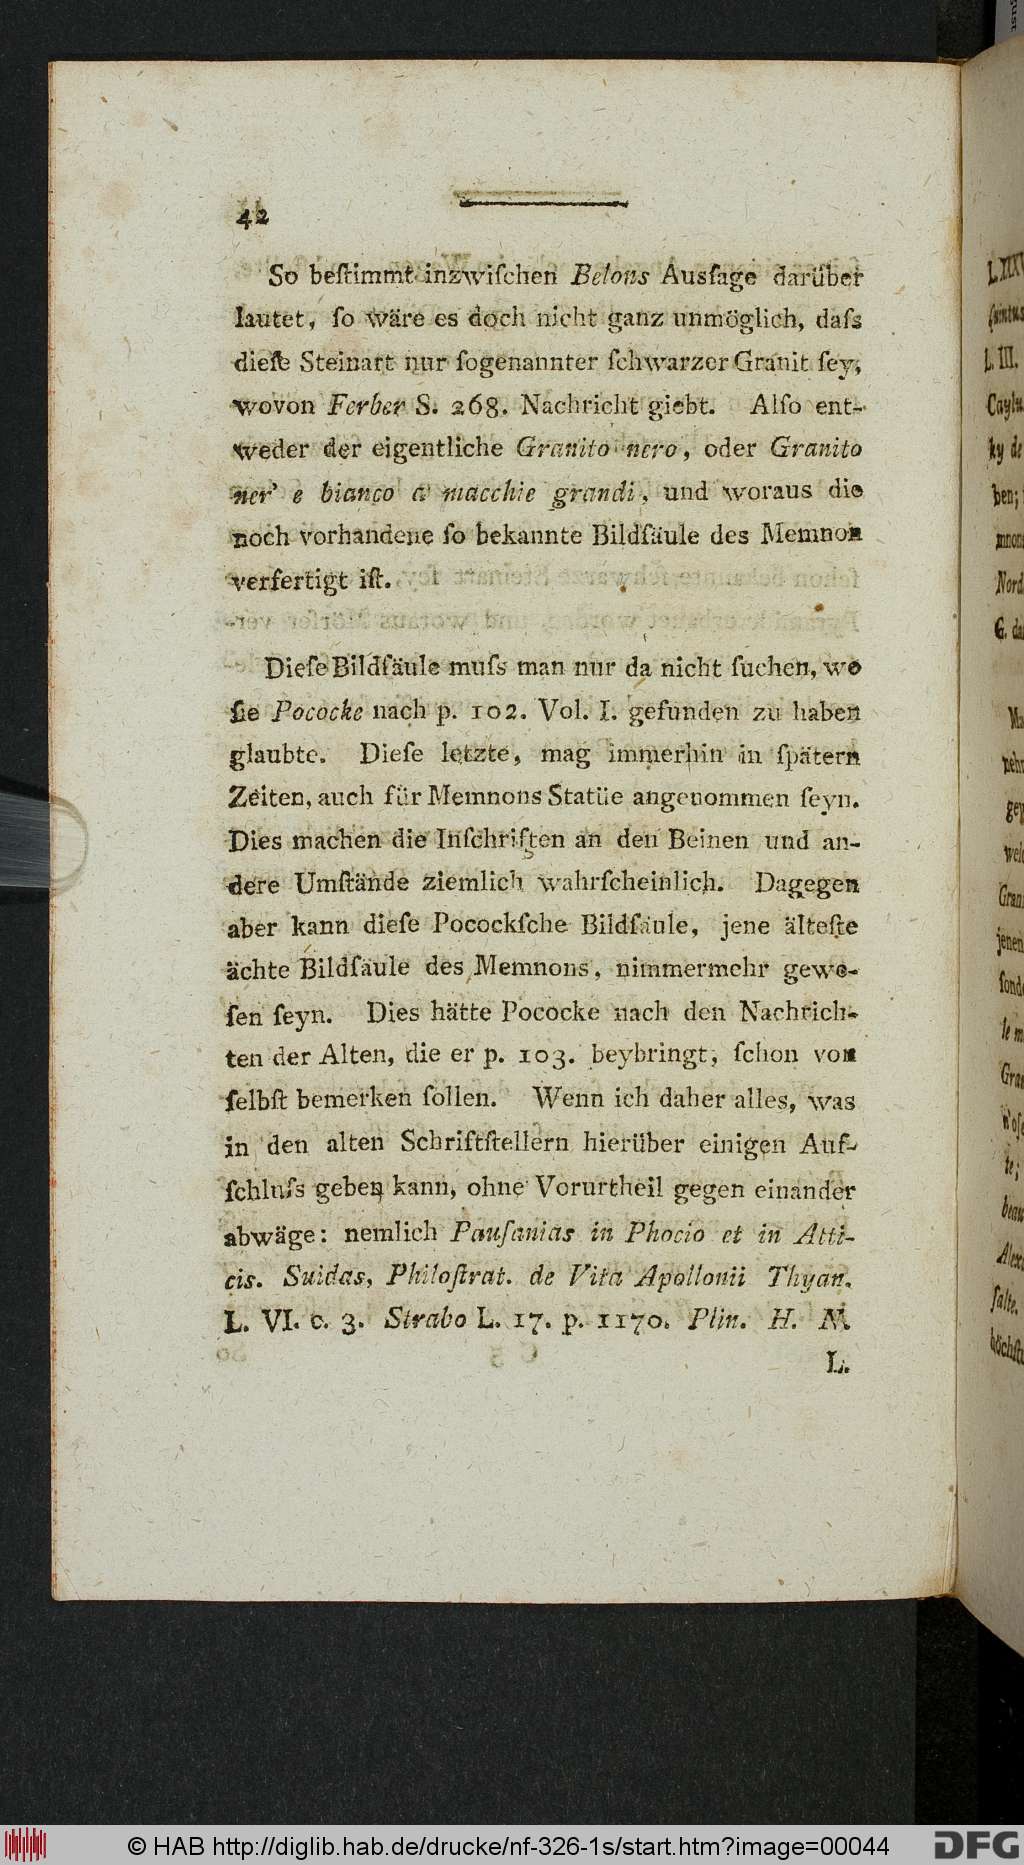 42
So beſtimmt inzwiſchen Belons Ausſage darüber
lautet, ſo wäre es doch nicht ganz unmöglich, daſs
dieſe Steinart nur ſogenannter ſchwarzer Granit ſey,
wovon Ferber S. 268. Nachricht giebt. Alſo ent-
weder der eigentliche Granito nero, oder Granito
ner' e bianco a macchie grandi, und woraus die
noch vorhandene ſo bekannte Bildſäule des Memnon
verfertigt iſt.
Dieſe Bildſäule muſs man nur da nicht ſuchen, wo
ſie Pococke nach p. 102. Vol. I. gefunden zu haben
glaubte. Dieſe letzte, mag immerhin in ſpätern
Zeiten, auch für Memnons Statüe angenommen ſeyn.
Dies machen die Inſchriften an den Beinen und an-
dere Umſtände ziemlich wahrſcheinlich. Dagegen
aber kann dieſe Pocockſche Bildſäule, jene älteſte
ächte Bildſäule des Memnons, nimmermehr gewe-
ſen ſeyn. Dies hätte Pococke nach den Nachrich-
ten der Alten, die er p. 103. beybringt, ſchon von
ſelbſt bemerken ſollen. Wenn ich daher alles, was
in den alten Schriftſtellern hierüber einigen Auf-
ſchluſs geben kann, ohne Vorurtheil gegen einander
abwäge: nemlich Pauſanias in Phocio et in Atti-
cis. Suidas, Philoſtrat. de Vita Apollonii Thyan.
L. VI. c. 3. Strabo L. 17. p. 1170. Plin. H. N.
L.
© HAB http://diglib.hab.de/drucke/nf-326-1s/start.htm?image=00044
DFG